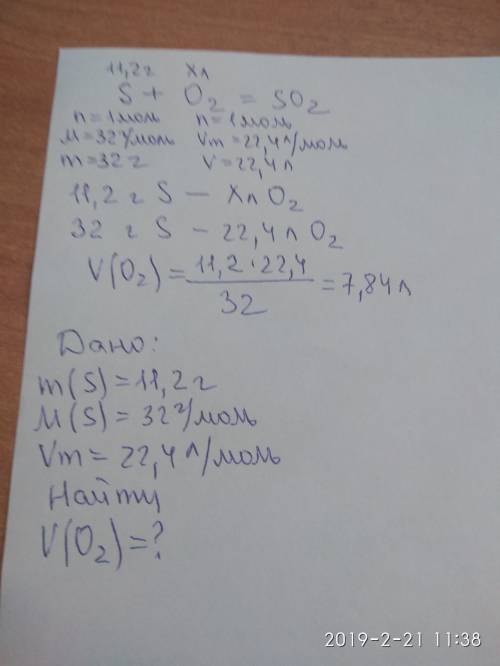 11,2г Xл
S + O₂ = SO₂
n = 1 моль n = 1 моль
M = 32 г/моль Vm = 22,4 л/моль
m = 32 г V = 22,4 л
11,2 г S — Xл O₂
32 г S - 22,4 л O₂
V(O₂) = 11,2 · 22,4 / 32 = 7,84 л
Дано:
m(S) = 11,2 г
M(S) = 32 г/моль
Vm = 22,4 л/моль
Найти
V(O₂) = ?
2019-2-21 11:38